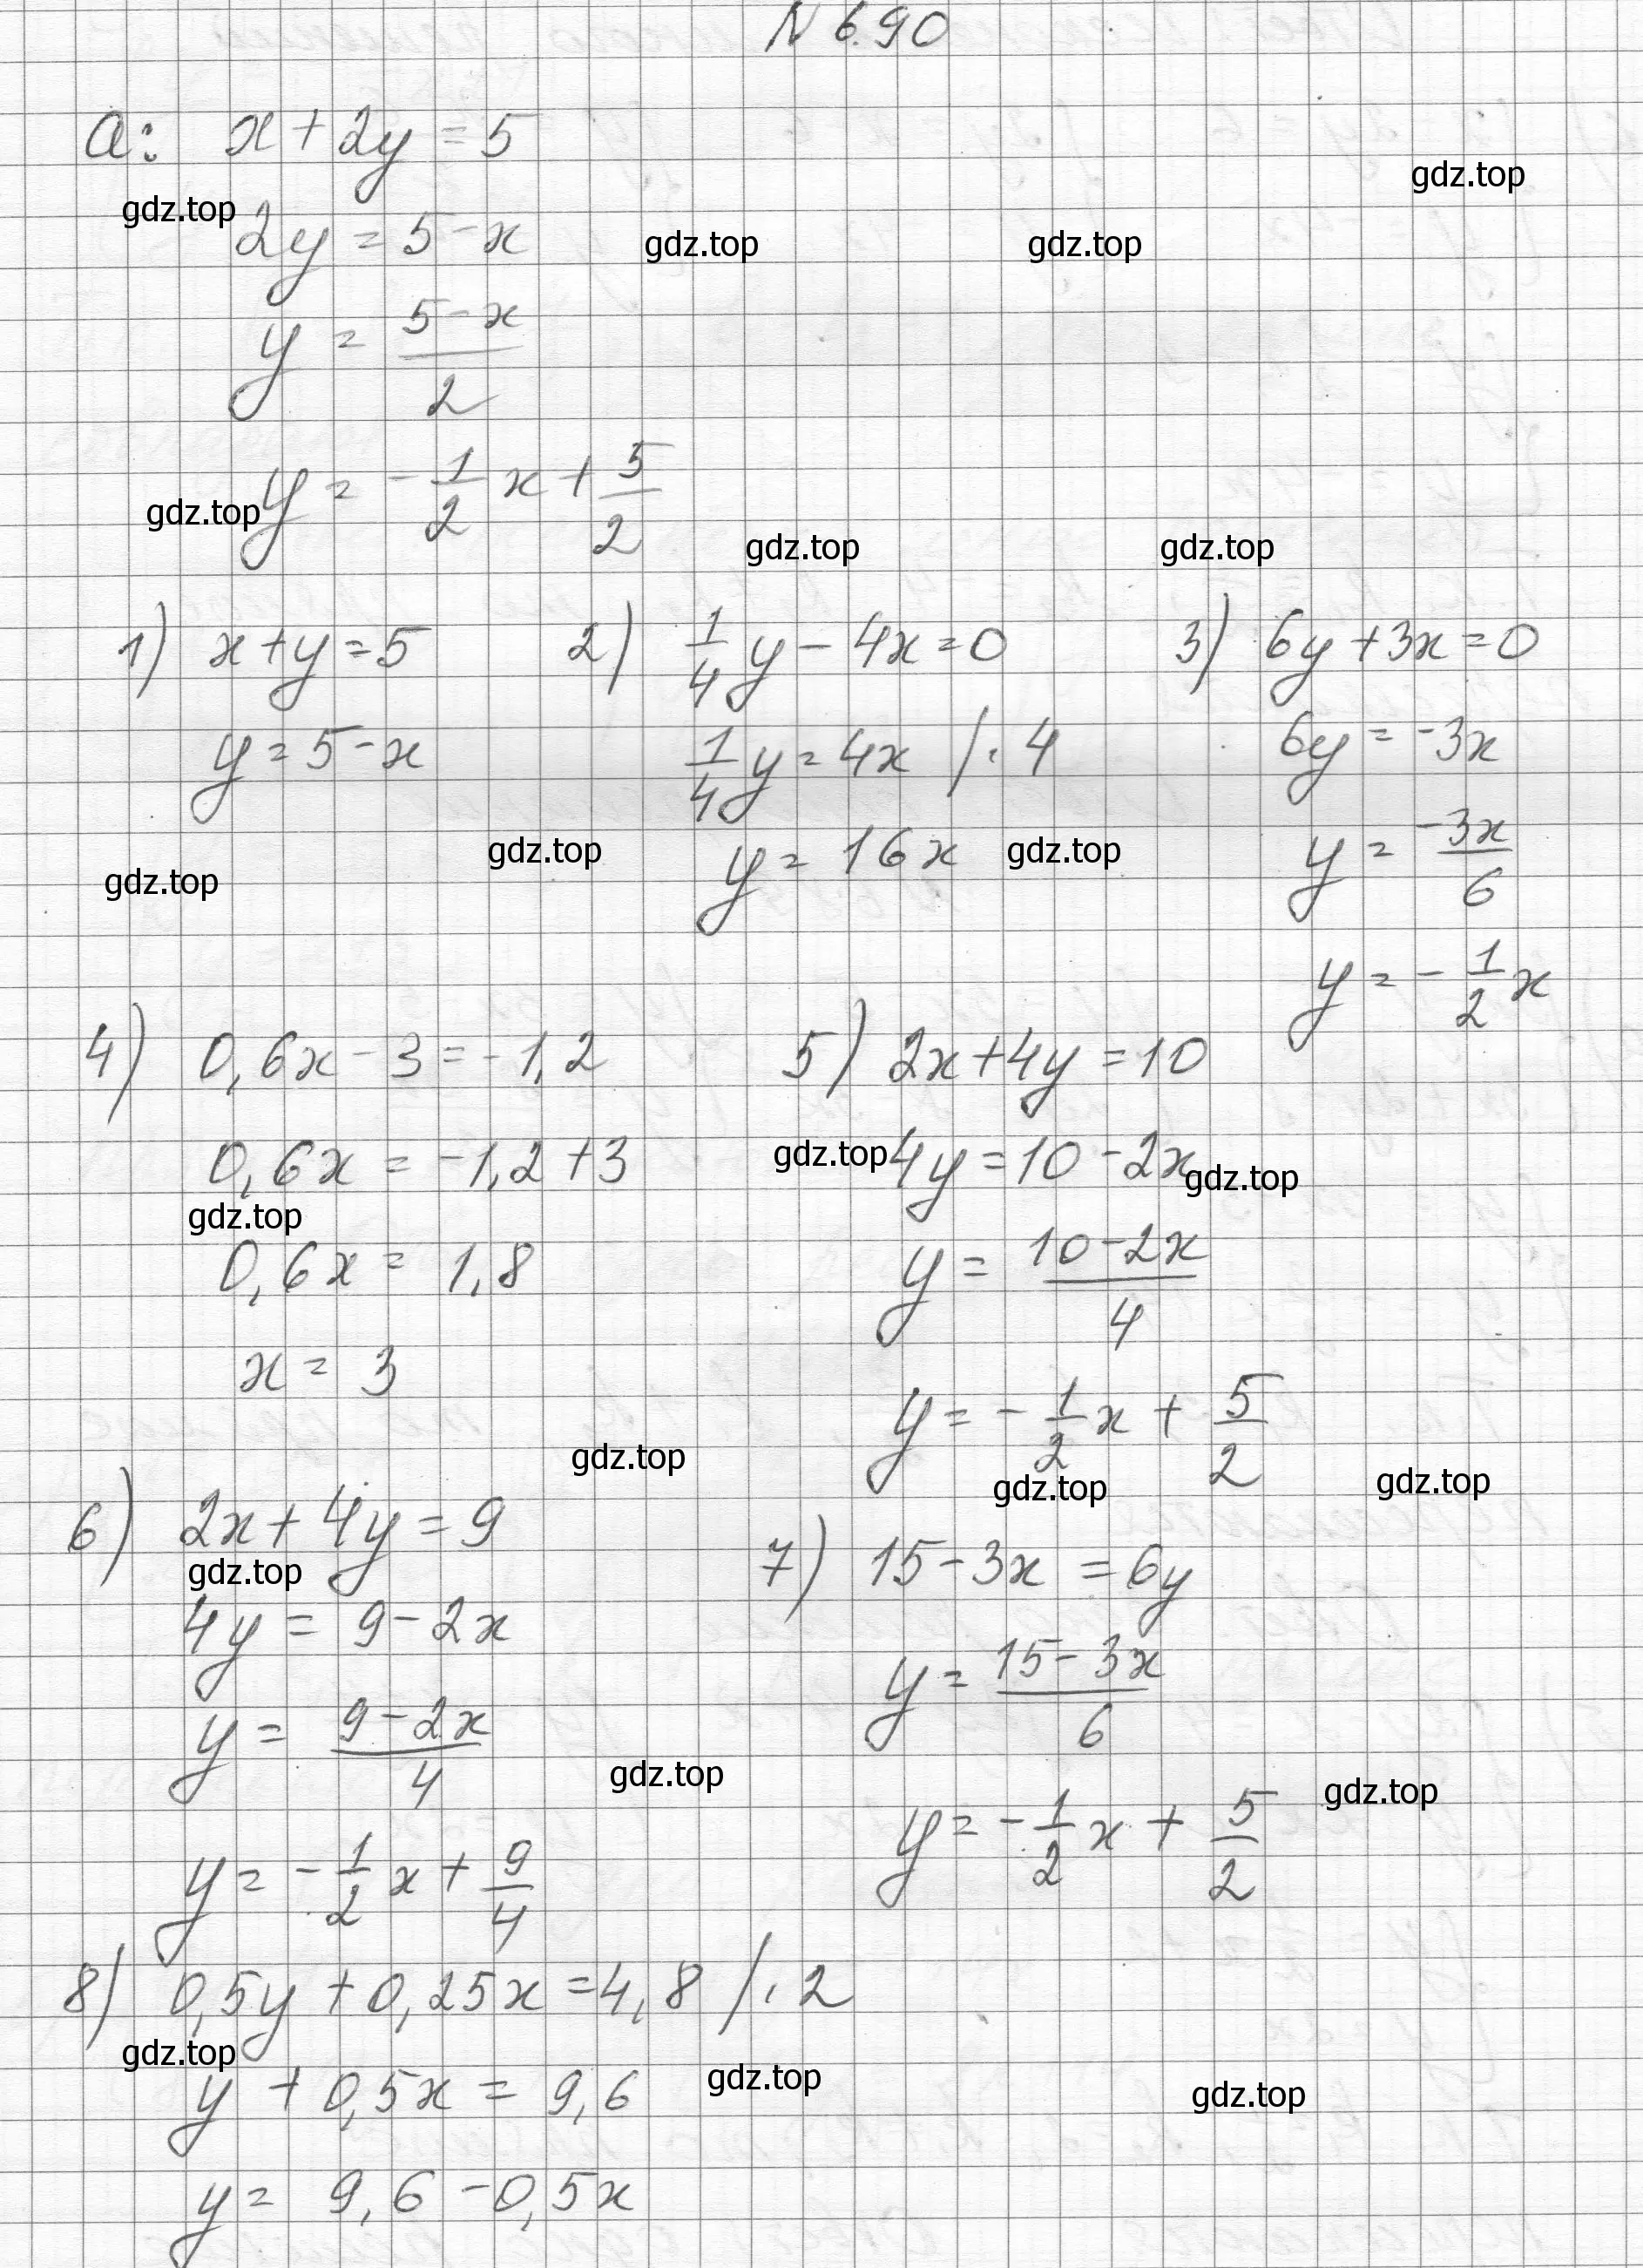 N 6.90
a: x + 2y = 5
gdz.top
gdz.top
2y = 5 - x
gdz.top
gdz.top
y = (5 - x)/2
y = - 1/2 x + 5/2
gdz.top
gdz.top
gdz.top
1) x + y = 5
y = 5 - x
2) 1/4 y - 4x = 0
1/4 y = 4x /· 4
y = 16x
3) 6y + 3x = 0
6y = -3x
y = -3x/6
y = - 1/2 x
gdz.top
gdz.top
gdz.top
4) 0,6x - 3 = -1,2
0,6x = -1,2 + 3
gdz.top
0,6x = 1,8
x = 3
5) 2x + 4y = 10
gdz.top
4y = 10 - 2x
gdz.top
y = (10 - 2x)/4
y = - 1/2 x + 5/2
gdz.top
gdz.top
gdz.top
6) 2x + 4y = 9
gdz.top
4y = 9 - 2x
y = (9 - 2x)/4
y = - 1/2 x + 9/4
7) 15 - 3x = 6y
y = (15 - 3x)/6
gdz.top
gdz.top
y = - 1/2 x + 5/2
8) 0,5y + 0,25x = 4,8 /· 2
gdz.top
y + 0,5x = 9,6
gdz.top
gdz.top
y = 9,6 - 0,5x